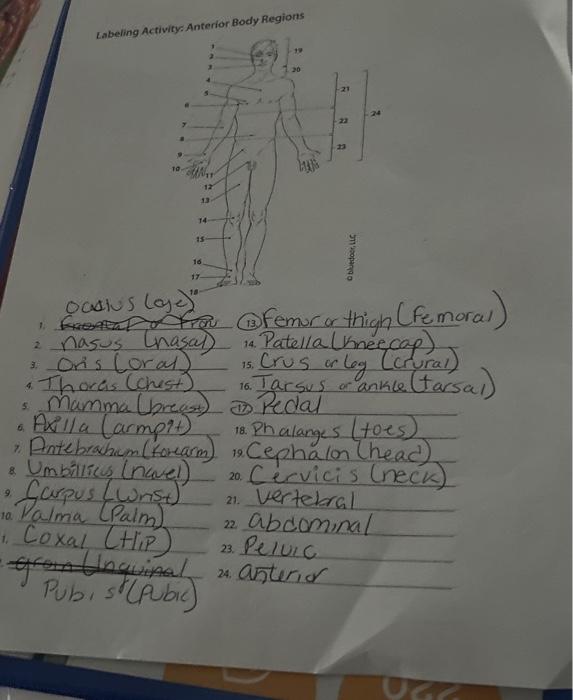 Labeling Activity: Anterior Body Regions
1
2
3
4
5
6
7
8
9
10
11
12
13
14
15
16
17
18
19
20
21
22
23
24
© bluedoor, LLC
oculus (eye)
1.
2. nasus (nasal)
3. Oris (oral)
4. Thoras (chest)
5. Mamma (breast)
6. Axilla (armpit)
7. Antebrachum (forearm)
8. Umbilicus (navel)
9. Carpus (Wrist)
10. Palma (Palm)
1. Coxal (HIP)
groin Unguinal
Pubis (Pubic)
13. Femur or thigh (femoral)
14. Patella (kneecap)
15. Crus or leg (crural)
16. Tarsus or ankle (tarsal)
17. Pedal
18. Phalanges (toes)
19. Cephalon (head)
20. Cervicis (neck)
21. vertebral
22. abdominal
23. Pelvic
24. anterior